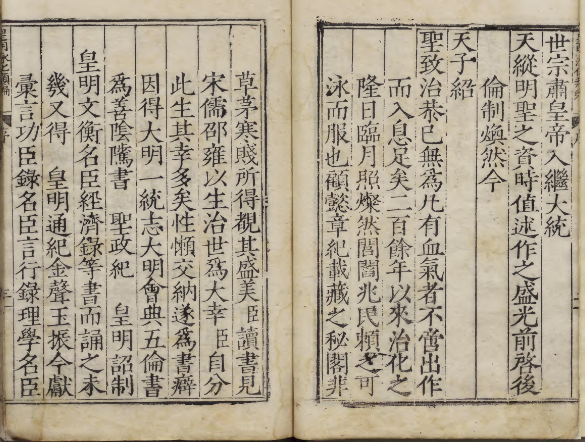 世宗肅皇帝入繼大統
天縱明聖之資時值述作之盛光前啓後
倫制煥然今
天子紹
聖致治恭已無爲凡有血氣者不啻出作
而入息足矣二百餘年以來治化之
隆日臨月照燦然閭閻兆民賴之可
泳而服也顧懿章紀載藏之秘閣非
草茅寒賤所得覩其盛美臣讀書見
宋儒邵雍以生治世爲大幸臣自分
此生其幸多矣性懶交納遂爲書癖
因得大明一統志大明會典五倫書
爲善陰騭書 聖政紀 皇明詔制
皇明文衡名臣經濟錄等書而誦之未
幾又得 皇明通紀金聲玉振今獻
彙言功臣錄名臣言行錄理學名臣